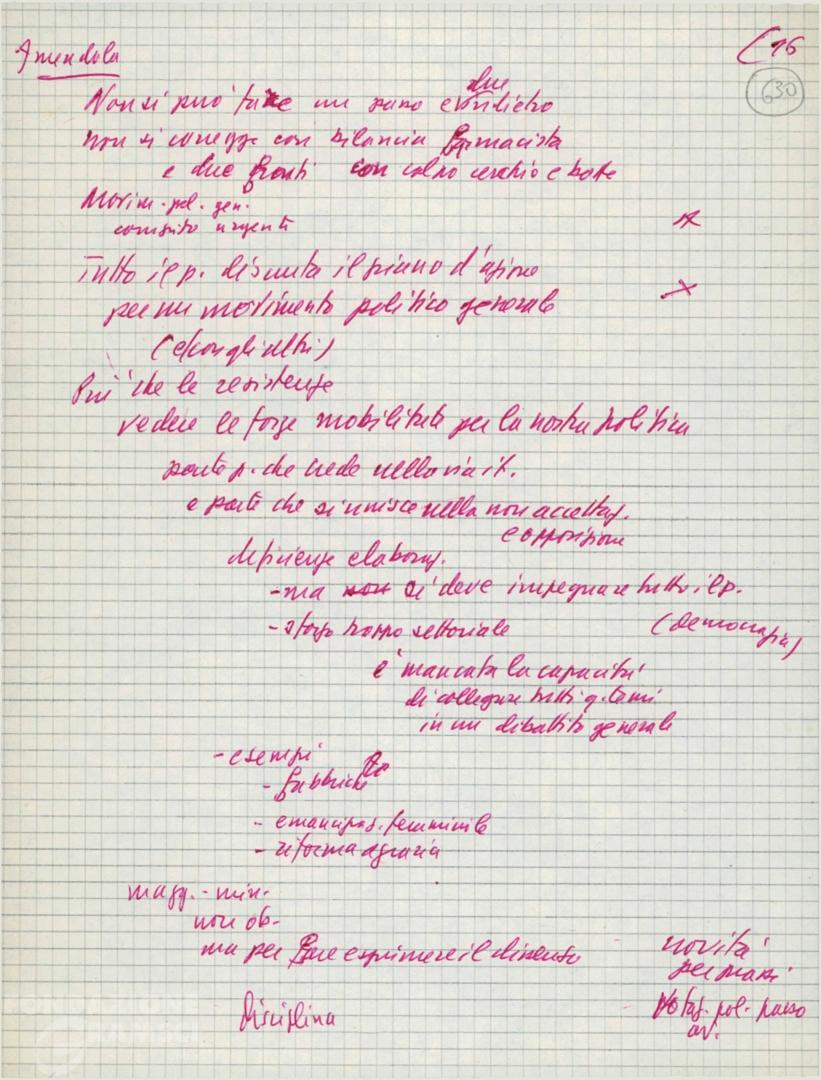 Amendola
C 16
630
Non si può fare un passo e due indietro
non si corregge con bilancia farmacista
e due fronti con colpo cerchio e botte
Movim. pol. gen.
compito urgente
Tutto il p. discuta il piano d'azione
per un movimento politico generale
(e con gli altri)
Più che le resistenze
vedere le forze mobilitate per la nostra politica
parte p. che crede nella via it.
e parte che si unisce nella non accettaz.
e opposizione
deficienze elaboraz.
- ma non si deve impegnare tutto il p.
(democrazia)
- sforzo troppo settoriale
è mancata la capacità
di collegare tutti q. temi
in un dibattito generale
- esempi
- fabbriche
- emancipaz. femminile
- riforma agraria
magg. - min.
non ob.
ma per fare esprimere il dissenso
novità
per prassi
Votaz. pol. passo
av.
disciplina